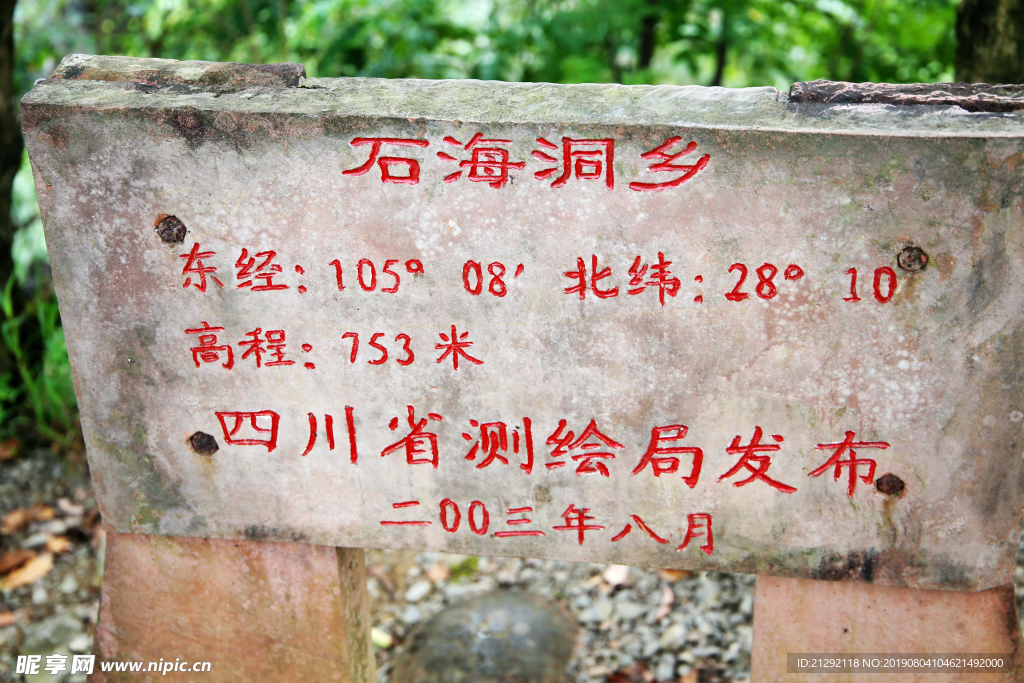 石海洞乡
东经：105° 08′ 北纬：28° 10
高程：753 米
四川省测绘局发布
二00三年八月
昵享网 www.nipic.cn
ID:21292118 NO:20190804104621492000